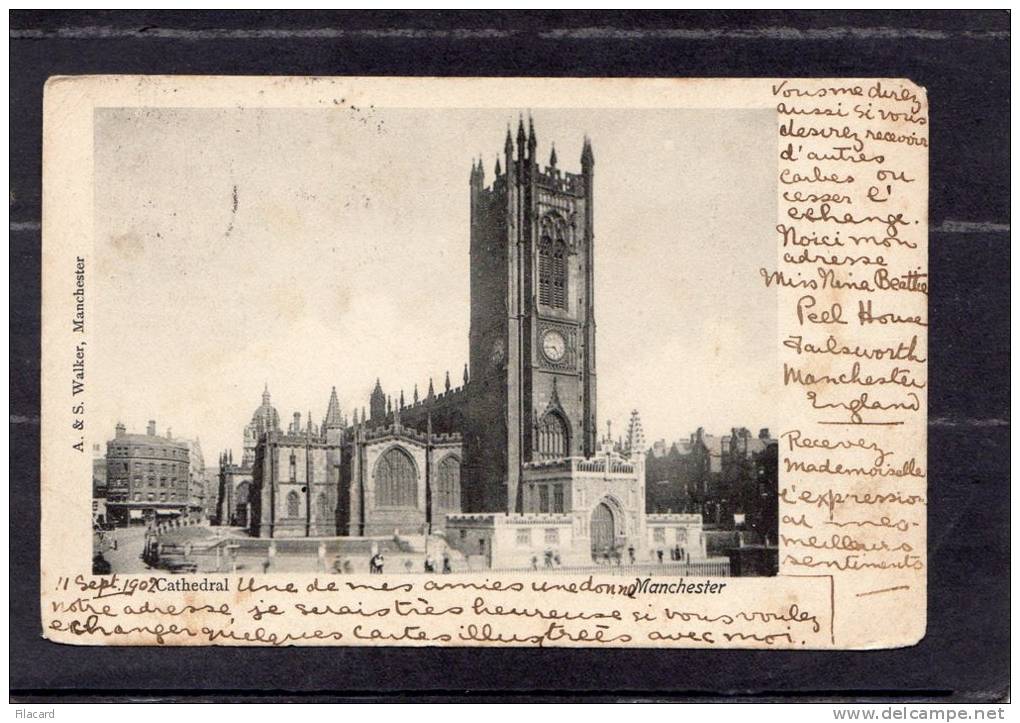 A. & S. Walker, Manchester
11 Sept. 1902
Cathedral
Manchester
Une de mes amies m'a donné
votre adresse, je serais très heureuse si vous voulez
echanger quelques cartes illustrées avec moi.
Vous me direz
aussi si vous
desirez recevoir
d'autres
cartes ou
cesser l'
echange.
Voici mon
adresse
Miss Nina Beattie
Peel House
Failsworth
Manchester
England
Recevez
Mademoiselle
l'expression
at mes
meilleurs
sentiments
Filacard
www.delcampe.net